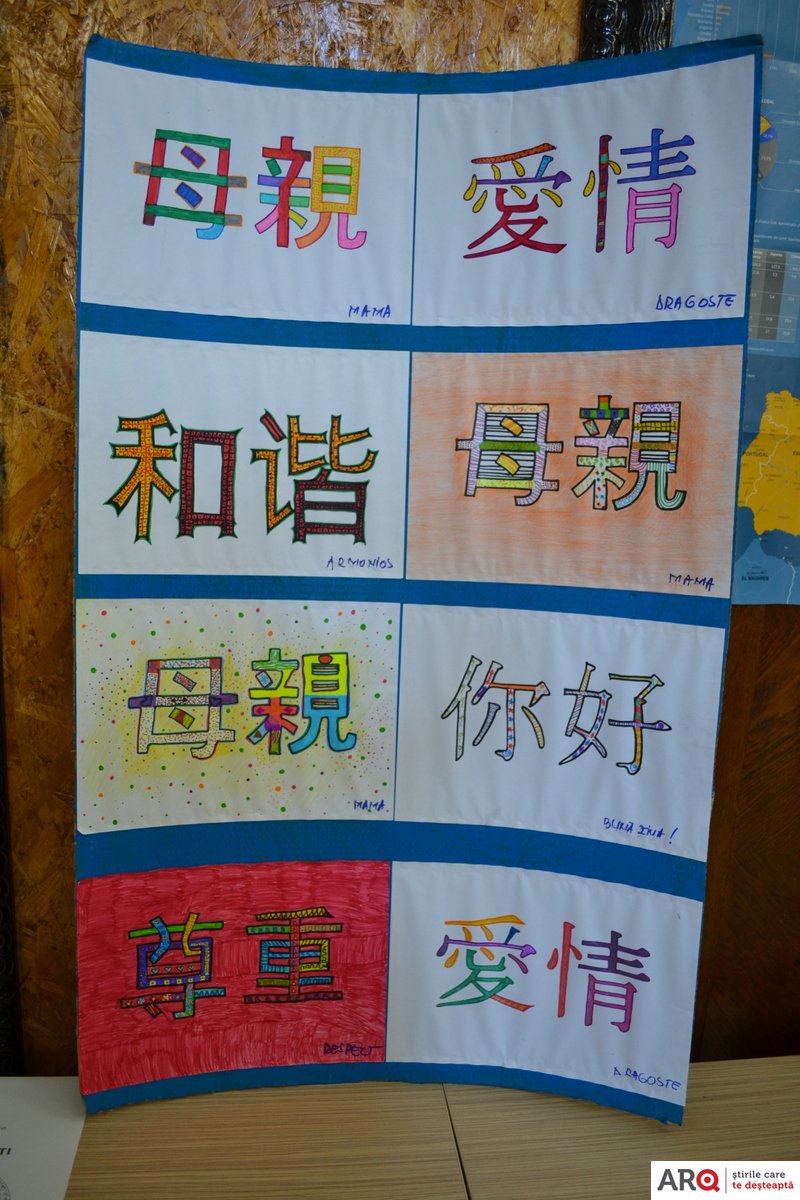 母親
MAMA
愛情
DRAGOSTE
和谐
ARMONIOS
母親
MAMA
母親
MAMA
你好
BUNĂ ZIUA!
尊重
RESPECT
愛情
DRAGOSTE
EL MAGREB
PORTUGAL
ARQ
știrile care
te deșteaptă